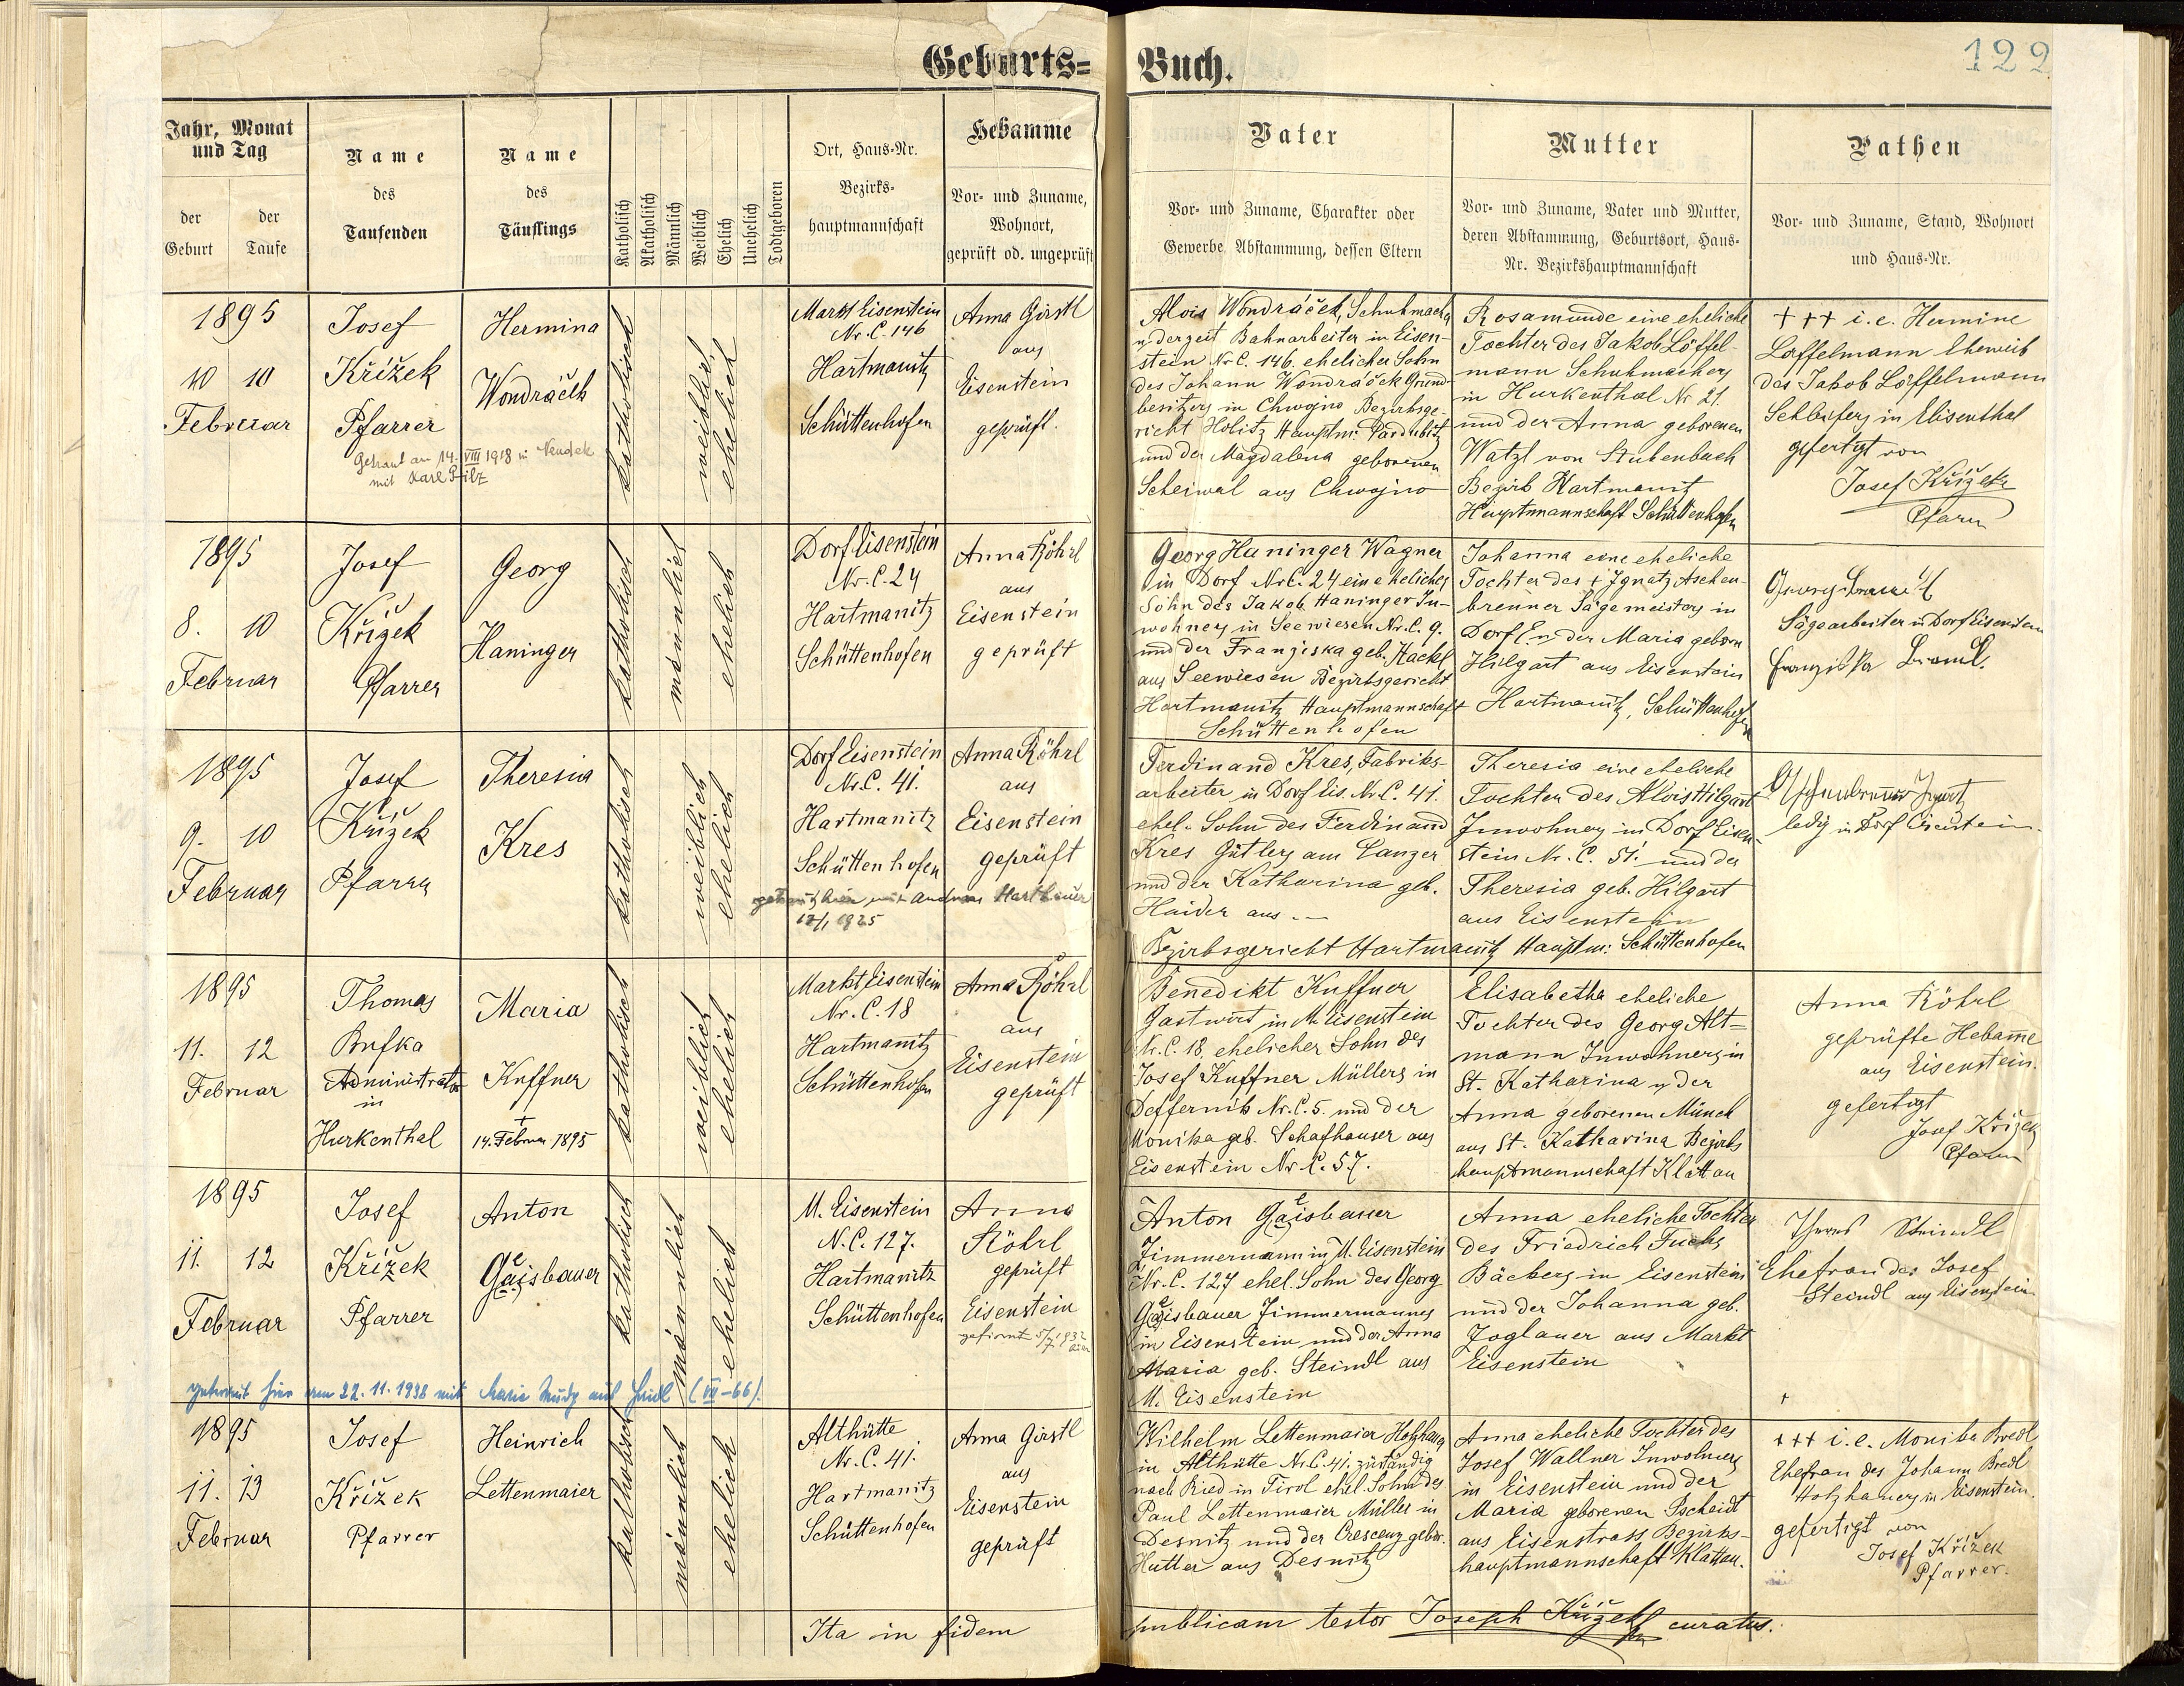 Geburts-Buch.
122
Jahr, Monat und Tag
der Geburt
der Taufe
Name des Taufenden
Name des Täuflings
Katholisch
Akatholisch
Männlich
Weiblich
Ehelich
Unehelich
Todtgeboren
Ort, Haus-Nr.
Bezirks-
hauptmannschaft
Hebamme
Vor- und Zuname,
Wohnort,
geprüft od. ungeprüft
Vater
Vor- und Zuname, Charakter oder
Gewerbe, Abstammung, dessen Eltern
Mutter
Vor- und Zuname, Vater und Mutter,
deren Abstammung, Geburtsort, Haus-
Nr. Bezirkshauptmannschaft
Pathen
Vor- und Zuname, Stand, Wohnort
und Haus-Nr.
1895
10 10
Februar
Josef
Křížek
Pfarrer
Getraut am 14. VIII 1918 in Neudek
mit Karl Pilz
Hermina
Wondráček
katholisch
weiblich
ehelich
Markt Eisenstein
Nr. C. 146
Hartmanitz
Schüttenhofen
Anna Girstl
aus
Eisenstein
geprüft.
Alois Wondráček, Schuhmacher
u. derzeit Bahnarbeiter in Eisen-
stein Nr C. 146. ehelicher Sohn
des Johann Wondráček Grund-
besitzers in Chwojno Bezirksge-
richt Holitz Hauptm: Pardubitz
und der Magdalena geborenen
Scheiwal aus Chwojno
Rosamunde eine eheliche
Tochter des Jakob Löffel-
mann Schuhmachers
in Hurkenthal Nr 21.
und der Anna geborenen
Watzl von Stubenbach
Bezirk Hartmanitz
Hauptmannschaft Schüttenhofen
+++ i.e. Hermine
Löffelmann Eheweib
des Jakob Löffelmann
Schleifers in Elisenthal
gefertigt von
Josef Křížek
Pfarrer
1895
8. 10
Februar
Josef
Křížek
Pfarrer
Georg
Haninger
katholisch
männlich
ehelich
Dorf Eisenstein
Nr. C. 24
Hartmanitz
Schüttenhofen
Anna Röhrl
aus
Eisenstein
geprüft
Georg Haninger Wagner
in Dorf Nr C. 24 ein ehelicher
Sohn des Jakob Haninger In-
wohners in Seewiesen Nr. C. 9.
und der Franziska geb. Hackl
aus Seewiesen Bezirksgericht
Hartmanitz Hauptmannschaft
Schüttenhofen
Johanna eine eheliche
Tochter des + Ignatz Aschen-
brenner Sägemeisters in
Dorf E. u. der Maria geborn
Hilgart aus Eisenstein
Hartmanitz, Schüttenhofen
Georg
Sägearbeiter in Dorf Eisenstein
Franziska
1895
9. 10
Februar
Josef
Křížek
Pfarrer
Theresia
Kres
katholisch
weiblich
ehelich
Dorf Eisenstein
Nr. C. 41.
Hartmanitz
Schüttenhofen
getraut hier mit Andreas
1925
Anna Röhrl
aus
Eisenstein
geprüft
Ferdinand Kres, Fabriks-
arbeiter in Dorf Eis. Nr. C. 41.
ehel. Sohn des Ferdinand
Kres Gütlers am Panzer
und der Katharina geb.
Haider aus --
Bezirksgericht Hartmanitz Hauptm: Schüttenhofen
Theresia eine eheliche
Tochter des Alois Hilgart
Inwohners in Dorf Eisen-
stein Nr. C. 51. und der
Theresia geb. Hilgart
aus Eisenstein
Aschenbrenner Ignatz
ledig in Dorf Eisenstein.
1895
11. 12
Februar
Thomas
Bufka
Administrator
in
Hurkenthal
Maria
Kuffner
+
14. Februar 1895
katholisch
weiblich
ehelich
Markt Eisenstein
Nr. C. 18
Hartmanitz
Schüttenhofen
Anna Röhrl
aus
Eisenstein
geprüft
Benedikt Kuffner
Gastwirt in M. Eisenstein
Nr. C. 18, ehelicher Sohn des
Josef Kuffner Müllers in
Deffernik Nr. C. 5. und der
Monika geb. Schafhauser aus
Eisenstein Nr C. 57.
Elisabetha eheliche
Tochter des Georg Alt=
mann Inwohners in
St. Katharina u. der
Anna geborenen Münch
aus St. Katharina Bezirks
hauptmannschaft Klattau
Anna Röhrl
geprüfte Hebame
aus Eisenstein.
gefertigt
Josef Křížek
Pfarrer
1895
11. 12
Februar
Josef
Křížek
Pfarrer
Anton
Gaisbauer
e
katholisch
männlich
ehelich
M. Eisenstein
N. C. 127.
Hartmanitz
Schüttenhofen
Anna
Röhrl
geprüft
Eisenstein
gefirmt 5/7 1932
getraut hier am 22. 11. 1938 mit Marie (VII-66).
Anton Gaisbauer
e
Zimmermann in M. Eisenstein
Nr. C. 127 ehel. Sohn des Georg
Gaisbauer Zimmermannes
e
in Eisenstein und der Anna
Maria geb. Steindl aus
M. Eisenstein
Anna eheliche Tochter
des Friedrich Fuchs
Bäckers in Eisenstein
und der Johanna geb.
Joglauer aus Markt
Eisenstein
Steindl
Ehefrau des Josef
Steindl aus Eisenstein
1895
11. 13
Februar
Josef
Křížek
Pfarrer
Heinrich
Lettenmaier
katholisch
männlich
ehelich
Althütte
Nr. C. 41.
Hartmanitz
Schüttenhofen
Anna Girstl
aus
Eisenstein
geprüft
Wilhelm Lettenmaier Holzhauer
in Althütte Nr C. 41. zuständig
nach Ried in Tirol ehel. Sohn des
Paul Lettenmaier Müller in
Desnitz und der Crescenz gebor.
Hutter aus Desnitz
Anna eheliche Tochter des
Josef Wallner Inwohners
in Eisenstein und der
Maria geborenen Pscheidt
aus Eisenstrass Bezirks-
hauptmannschaft Klattau.
+++ i.e. Monika Bredl
Ehefrau des Johann Bredl
Holzhauers in Eisenstein.
gefertigt von
Josef Křížek
Pfarrer.
Ita in fidem publicam testor Joseph Křížek curatus.